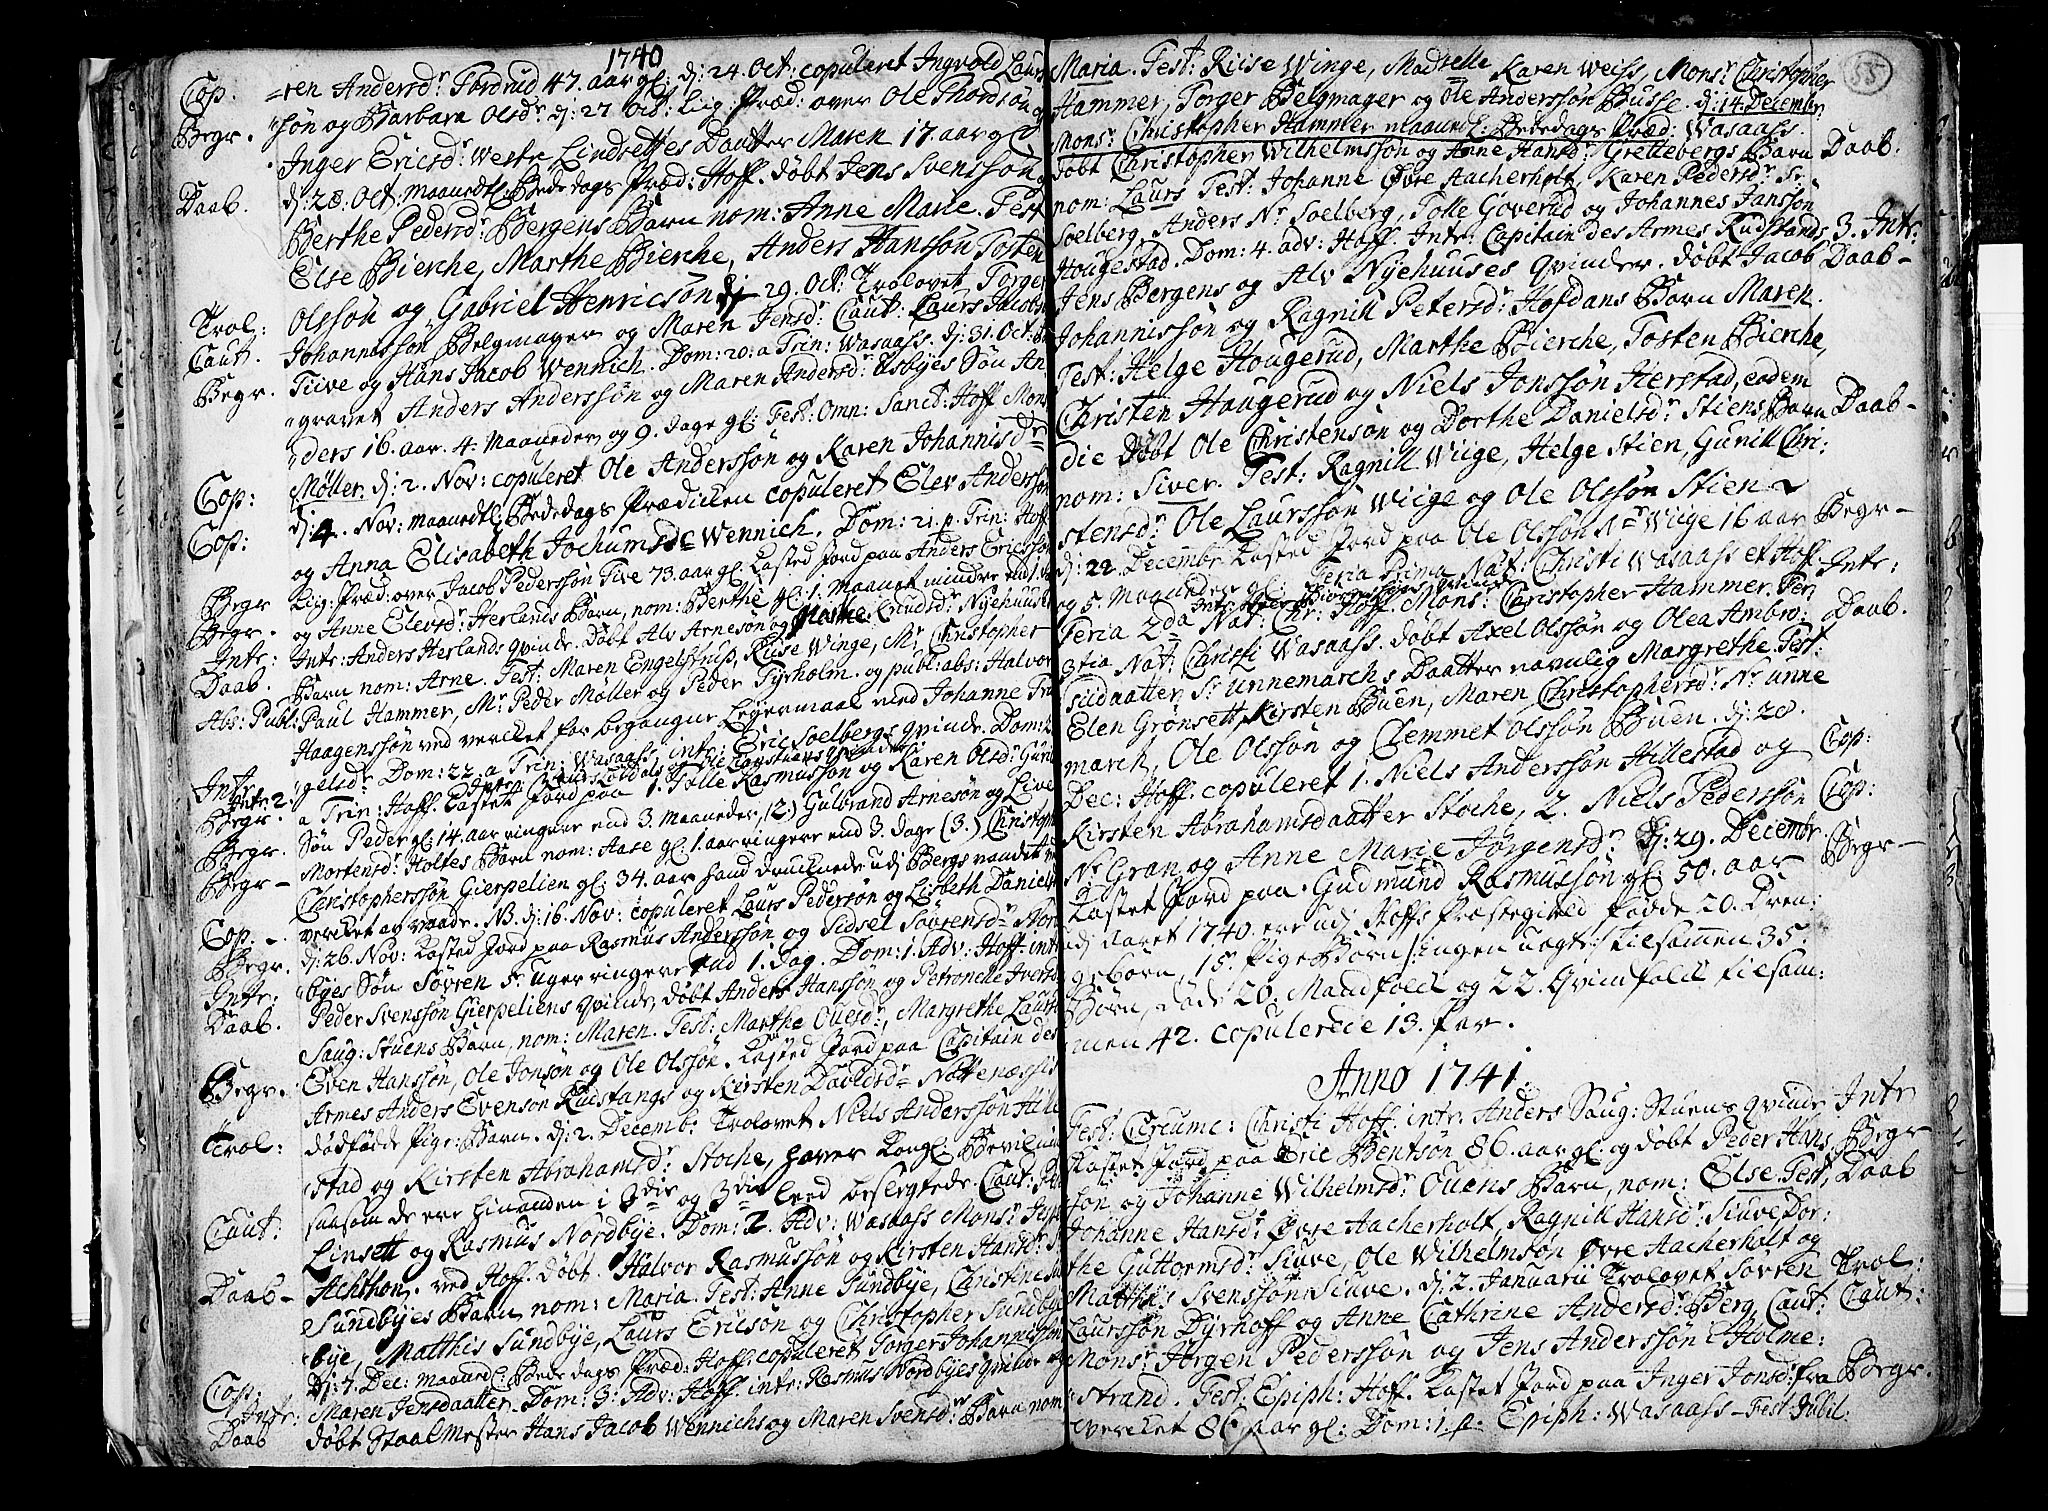 1740
Cop. =ren Andersdr Fordrud 47. aar gl: d: 24 Oct: copuleret Ingvold Laur
Begr. søn og Barbara Olsdr. d: 27 Oct: Liig-Præd: over Ole Thordsøn
Inger Ericsdr Westre Lindsettes Daatter Maren 17. aar gl
Daab. d: 28. Oct: Maanedtl: Bededags Præd: Hoff. døbt Jens Svenssøn
Berthe Pedersdr Bergens Barn nom: Anne Marie. Test
Else Bierche, Marthe Bierche, Anders Hanssøn, Tosten
Olssøn og Gabriel Henricsøn d 29. Oct: Trolovet Torger
Trol: Johannissøn Belgmager og Maren Jensdr Caut: Laurs Jacobs
Caut. Tiive og Hans Jacob Wennich. Dom: 20. a Trin: Wasaass. d: 31. Oct:
Begr. gravet Anders Anderssøn og Maren Andersdr Esbyes Søn An
ders 16. aar. 4. Maaneder og 9. Dage gl: Fest: Omn: Sanct: Hoff Mons
Cop: Møller. d: 2. Nov: copuleret Ole Anderssøn og Karen Johannisdr
Cop: d: 4. Nov: Maanedtl: Bededags Prædicken copuleret Elev Anderssøn
og Anna Elisabeth Jochumsdr Wennich. Dom: 21. p. Trin: Hoff.
Begr Liig: Præd: over Jacob Pederssøn Tive 73. aar gl. Kasted Jord paa Anders Ericssøn
Begr. og Anne Elevsdr Herlands Barn, nom: Berthe gl: 1. Maanet mindre end 1.
Intr: Intr: Anders Herlands Qvinde. Døbt Alv Arnesøn og Marthe Knudsdr Nyehuuses
Daab. Barn nom: Arne. Test: Maren Engelstrup, Riise Winge, Mr Christopher
Abs: Publ: Paul Hammer, Mr Peder Møller og Peder Tyrholm. og publ: abs: Halvor
Haagenssøn ved vercket for begangne Leyermaal med Johanne Tru
Intr. gelsdr Dom: 22. a Trin: Wasaass, intr: Eric Soelbergs Qvinde. Dom:
Intr. 2. a Trin: Hoff. Kastet Jord paa 1. Tolle Rasmussøn og Karen Olsdr
Begr. Søn Peder gl: 14. aar ringere end 3. Maaneder, (2) Gulbrand Arnesøn og Live
Begr. Mortensdr Holtes Barn nom: Aase gl: 1. aar ringere end 3. Dage (3.) Christopher
Begr - Christopherssøn Gierpelien gl: 34. aar hand Drucknede udj Bergs vandet
Cop. - vercket av vaade. NB. d: 16. Nov: copuleret Laurs Pedersøn og Lisbeth Daniels
Begr. d: 26. Nov: Kasted Jord paa Rasmus Anderssøn og Sidsel Sørensdr Nor
Intr: byes Søn Søvren 5. Uger ringere end 1. Dag. Dom: 1. Adv: Hoff. intr
Daab. Peder Svenssøn Gierpeliens Qvinde, døbt Anders Hanssøn og Petronelle Iversdr
Saug: Stuens Barn, nom: Maren. Test: Marthe Ouesdr, Margrethe Laurs
Even Hanssøn, Ole Jonsøn og Ole Olssøn. Kasted Jord paa Capitain des
Begr. Armes Anders Evensøn Rudstangs og Kirsten Davidsdr Nøttenæssis
Trol: dødfødde Pige: Barn. d: 2. Decemb: Trolovet Niels Anderssøn Hille
stad og Kirsten Abrahamsdr Stoche, haver Kongl: Bevilning
saasom de ere hinanden i 2die og 3die leed beslegtede. Caut:
Caut: Linsett og Rasmus Nordbye. Dom: 2. Adv: Wasaass Monsr
Achthon, ved Hoff. døbt. Halvor Rasmussøn og Kirsten Hansdr
Daab - Sundbyes Barn nom: Maria. Test: Anne Sundbye, Christine
bye, Matthis Sundbye, Laurs Ericsøn og Christopher Sundbye
Cop: d: 7. Dec: Maanedl: Bededags Præd: Hoff. copuleret Torger Johannissøn
Intr: Maren Jensdaatter. Dom: 3. Adv: Hoff. intr: Rasmus Nordbyes Qvinde
Daab døbt Staal Mester Hans Jacob Wennichs og Maren Svensdr Barn nom
55
Maria. Test: Riise Winge, Madselle Karen Weiss, Monsr Christopher
Hammer, Torger Belgmager og Ole Anderssøn Busse. d: 14. Decembr
Monsr Christopher Hammer maanedl: Bededags Præd: Wasaass.
døbt Christopher Wilhelmssøn og Anne Hansdr Grettebergs Barn Daab.
nom: Laurs Test: Johanne Øvre Aacherholt, Karen Pedersdr Sr
Soelberg, Anders Nr Soelberg, Tolle Goverud og Johannes Janssøn
Hougestad. Dom: 4. adv: Hoff. Intr: Capitain des Armes Rudstangs 3. Intr:
Jens Bergens og Alv Nyehuuses Qvinder. døbt Jacob Daab -
Johannissøn og Ragnill Petersdr Hofdans Barn Maren.
Test: Helge Hougerud, Marthe Bierche, Tosten Bierche,
Christen Haugerud og Niels Jonssøn Herstad, eodem
die Døbt Ole Christensøn og Dorthe Danielsdr Stiens Barn Daab -
nom: Siver. Test: Ragnill Wiige, Helge Stien, Gunill Chri:
stensdr Ole Laurssøn Wiige og Ole Olssøn Stien
d: 22. Decembr Kasted Jord paa Ole Olssøn Nr Wiige 16 aar Begr -
og 5. Maaneder gl: Feria Prima Nat: Christi Wasaass et Hoff. Intr:
Feria 2da Nat: Chr: Hoff. Mons: Christopher Hammer. Feri
3tia Nat: Christi Wasaass. døbt Axel Olssøn og Olea Ambro: Daab.
siidaatter Sr Unnemarchs Daatter navnlig Margrethe. Test:
Elen Grønsett, Kirsten Buen, Maren Christophersdr Nr Unne
march, Ole Olssøn og Clemmet Olssøn Buen. d: 28.
Dec: Hoff. copuleret 1. Niels Anderssøn Hillestad og Cop:
Kirsten Abrahamsdaatter Stoche, 2. Niels Pederssøn Cop:
Nr Gran og Anne Marie Jørgensdr d: 29. Decembr. Begr -
Kastet Jord paa Gudmund Rasmussøn gl: 50. aar
udj Aaret 1740. ere udj Hoffs Præstegield fødde 20. Dren:
geborn, 15. Pige Børn /: ingen uægte :/ tilsammen 35.
Børn, døde 20. Mandfoelck og 22. Qvindfolck tilsam:
men 42. copulerede 13. Par.
Anno 1741.
Fest: Circumc: Christi Hoff. intr. Anders Saug: Stuens Qvinde Intr
Kastet Jord paa Eric Bentsøn 86. aar gl: og døbt Peder Hans Begr
søn og Johanne Wilhelmsdr Ouens Barn, nom: Else Test, Daab
Johanne Hansdr Øvre Aacherholt, Ragnill Hansdr Siuve Dor:
the Guttormsdr Siuve, Ole Wilhelmsøn Øvre Aacherholt og
Matthis Svenssøn Siuve. d: 2. Januarii Trolovet Søvren Trol:
Laurssøn Dyrhoff og Anne Cathrine Andersdr Berg, Caut: Caut:
Monsr Jørgen Pederssøn og Jens Anderssøn Holme:
strand. Fest: Epiph: Hoff. Kastet Jord paa Inger Jonsdr fra Begr.
vercket 86 aar gl: Dom: 1. p. Epiph: Wasaass - Fest: Jubil: